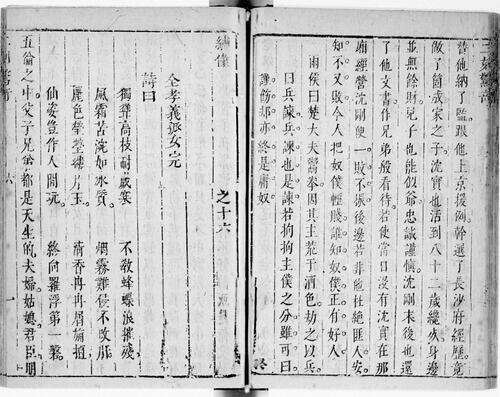 替他納了監跟他上京援例幹選了長沙府經歷竟
做了箇成家之子沈實也活到八十二歲纔歿身邊
並無餘財兒子也能似爺忠誠謹慎沈剛末後也還
了他文書作兄弟般看待若使當日沒有沈實在那
廂經營沈剛便一敗不振後邊若非他杜絕匪人安
知不又敗今人把奴僕輕賤誰知奴僕正有好人
雨侯曰楚大夫鬻拳因其主荒于酒色劫之以兵
曰兵諫兵諫也是諫若拘拘主僕之分雖可曰
謹飭却亦終是庸奴
終
繡像
之十六
全孝義孤女完
詩曰
獨聳高枝耐歲寒
不教蜂蝶浪摧殘
風霜苦浣如冰質
烟霧難侵不改肝
麗色瑩瑩縷片玉
清香冉冉屑旃檀
仙姿豈作人間玩
終向羅浮第一磐
五倫之中父子兄弟都是天生的夫婦姑娌君臣朋
六
一